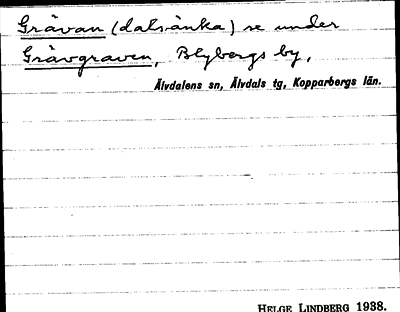 Grävan (dalsänka) se under
Grävgraven, Blybergs by,
Älvdalens sn, Älvdals tg, Kopparbergs län.
HELGE LINDBERG 1938.